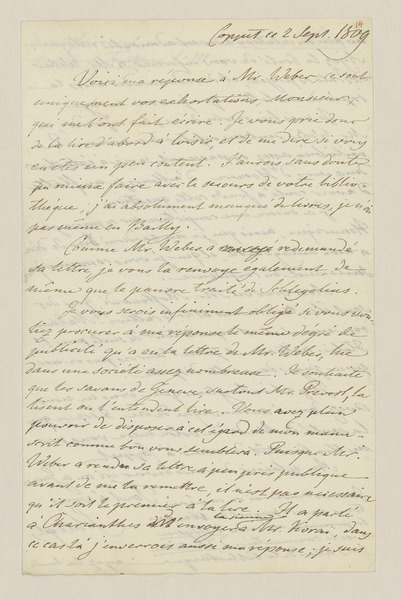 14
Coppet ce 2 Sept. 1809.
Voici ma réponse à Mr. Weber, ce sont
uniquement vos exhortations, Monsieur,
qui me l'ont fait écrire. Je vous prie donc
de la lire d'abord à loisir et de me dire si vous
en êtes un peu content. J'aurois sans doute
pu mieux faire avec le secours de votre biblio-
thèque, j'ai absolument manqué de livres, je n'ai
pas même eu Bailly.
Comme Mr. Weber a redemandé
sa lettre, je vous la renvoye également de
même que le pauvre traité de
Je vous serois infiniment obligé si vous vou-
liez procurer à ma réponse le même dégré de
publicité qu'a eu la lettre de Mr. Weber, lue
dans une société assez nombreuse. Je souhaite
que les savans de Genève surtout Mr. Prevost, la
lisent ou l'entendent lire. Vous avez plein
pouvoir de disposer à cet égard de mon manu-
scrit comme bon vous semblera. Puisque Mr.
Weber a rendu sa lettre à peu près publique
avant de me la remettre, il n'est pas nécessaire
qu'il soit le premier à la lire. Il a parlé
a d'envoyer la sienne à Mr. Korai, dans
ce cas là j'enverrois aussi ma réponse; je suis